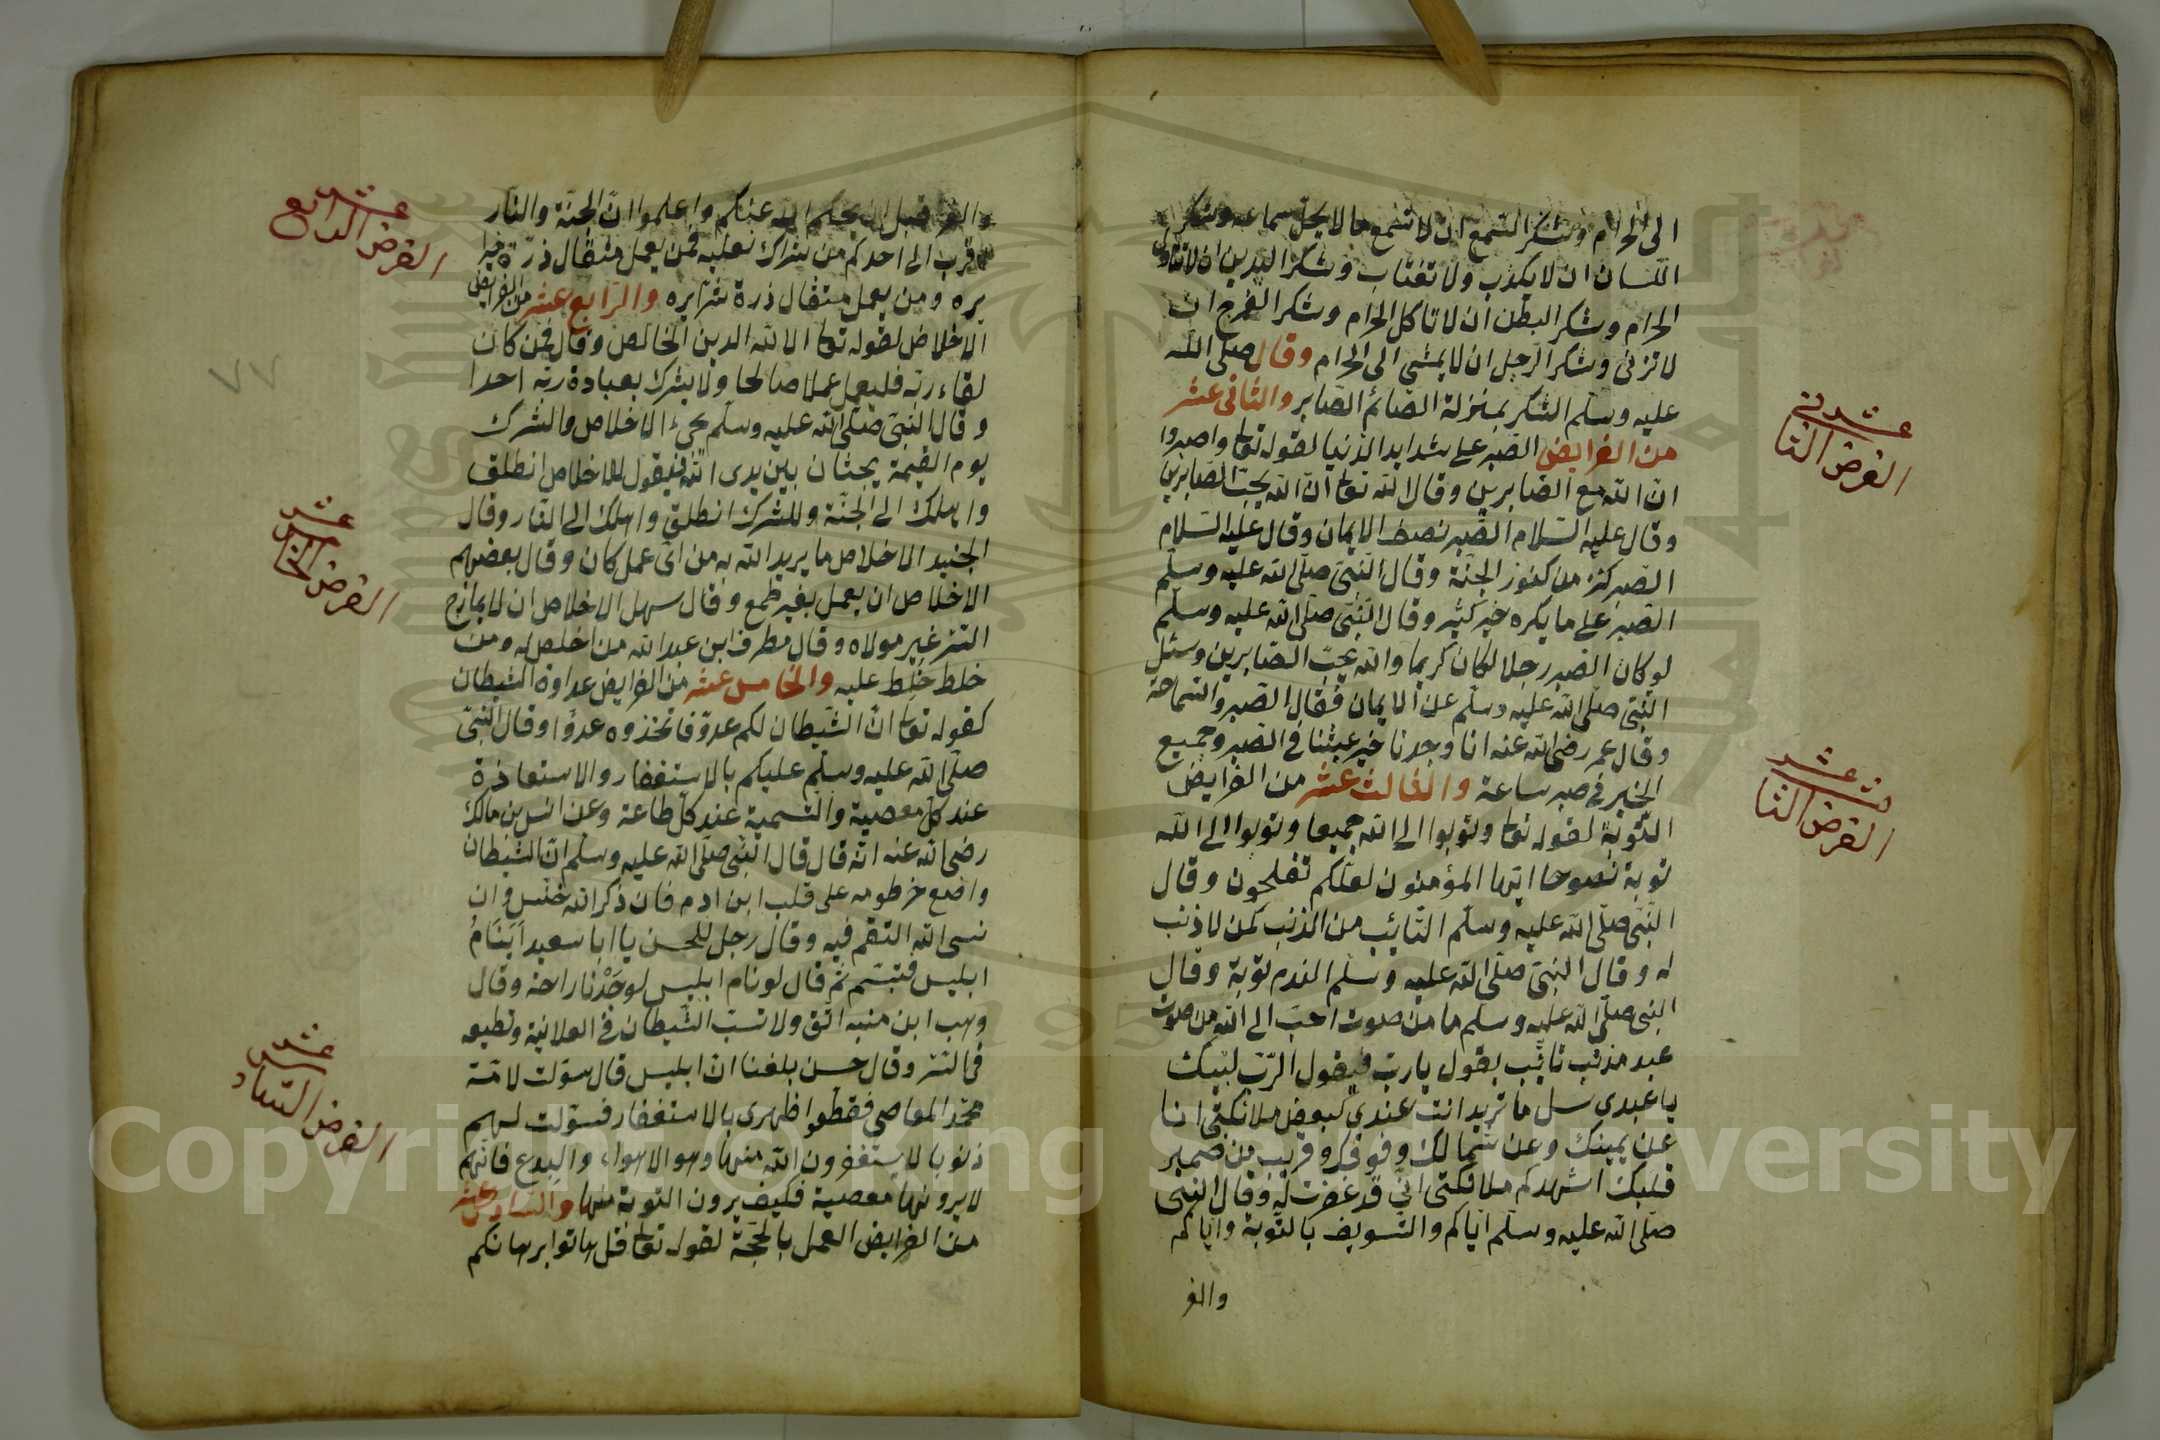 الى الحرام وشكر السمع ان لا تسمع مالا يحل سماعه وشكر
اللسان ان لا يكذب ولا تغتاب وشكر اليدين ان لا تناول
الحرام وشكر البطن ان لا تاكل الحرام وشكر الفرج ان
لا تزنى وشكر الرجل ان لا يمشى الى الحرام وقال صلى الله
عليه وسلم الشكر بمنزلة الصائم الصابر والثانى عشر
من الفرايض الصبر على شدايد الدنيا لقوله تعا واصبروا
ان الله مع الصابرين وقال الله تعا ان الله يحب الصابرين
وقال عليه السلام الصبر نصف الايمان وقال عليه السلام
الصبر كنز من كنوز الجنة وقال النبى صلى الله عليه وسلم
الصبر على ما يكره خير كثير وقال النبى صلى الله عليه وسلم
لو كان الصبر رجلا لكان كريما والله يحب الصابرين وسئل
النبى صلى الله عليه وسلم عن الايمان فقال الصبر والسماحة
وقال عمر رضى الله عنه انا وجدنا خير عيشنا فى الصبر وجميع
الخير فى صبر ساعة والثالث عشر من الفرايض
التوبة لقوله تعا وتوبوا الى الله جميعا وتوبوا الى الله
توبة نصوحا ايها المؤمنون لعلكم تفلحون وقال
النبى صلى الله عليه وسلم التائب من الذنب كمن لا ذنب
له وقال النبى صلى الله عليه وسلم الندم توبة وقال
النبى صلى الله عليه وسلم ما من صوت احب الى الله من صوت
عبد مذنب تائب يقول يارب فيقول الرب لبيك
يا عبدى سل ما تريد انت عندى كبعض ملائكتى انا
عن يمينك وعن شمالك وفوقك وقريب من ضمير
قلبك اشهدكم ملائكتى انى قد غفرت له وقال النبى
صلى الله عليه وسلم اياكم والتسويف بالتوبة واياكم
والغر
الفرض الثانى عشر
الفرض الثالث عشر
قبل ان يحكم الله عنكم واعلموا ان الجنة والنار
اقرب الى احدكم من شراك نعليه فمن يعمل مثقال ذرة خيرا
يره ومن يعمل مثقال ذرة شرا يره والرابع عشر من الفرايض
الاخلاص لقوله تعا الا لله الدين الخالص وقال فمن كان
لقاء ربه فليعمل عملا صالحا ولا يشرك بعبادة ربه احدا
وقال النبى صلى الله عليه وسلم يجىء الاخلاص والشرك
يوم القيمة يجثان بين يدى الله فيقول للاخلاص انطلق
واهلك الى الجنة وللشرك انطلق واهلك الى النار وقال
الجنيد الاخلاص ما يريد الله به من اى عمل كان وقال بعضهم
الاخلاص ان يعمل بغير طمع وقال سهل الاخلاص ان لا يمازج
السر غير مولاه وقال مطرف ابن عبد الله من اخلص له ومن
خلط خلط عليه والخامس عشر من الفرايض عداوة الشيطان
كقوله تعا ان الشيطان لكم عدو فاتخذوه عدوا وقال النبى
صلى الله عليه وسلم عليكم بالاستغفار والاستعاذة
عند كل معصية والتسمية عند كل طاعة وعن انس بن مالك
رضى الله عنه انه قال قال النبى صلى الله عليه وسلم ان الشيطان
واضع خرطومه على قلب ابن ادم فان ذكر الله خنس وان
نسى الله التقم فيه وقال رجل للحسن يا ابا سعيد اينام
ابليس فتبسم ثم قال لو نام ابليس لوجدنا راحة وقال
وهب ابن منبه اتق ولا تسب الشيطان فى العلانية وتطيعه
فى السر وقال حسن بلغنا ان ابليس قال سولت لامة
محمد المعاصى فقطعوا ظهرى بالاستغفار فسولت لهم
ذنوبا لا يستغفرون الله منها وهو الاهواء والبدع فانهم
لا يرونها معصية فكيف يرون التوبة منها والسادس عشر
من الفرايض العمل بالحجة لقوله تعا قل هاتوا برهانكم
الفرض الرابع عشر
٧٧
الفرض الخامس عشر
الفرض السادس عشر
Copyright © King Saud University
1957